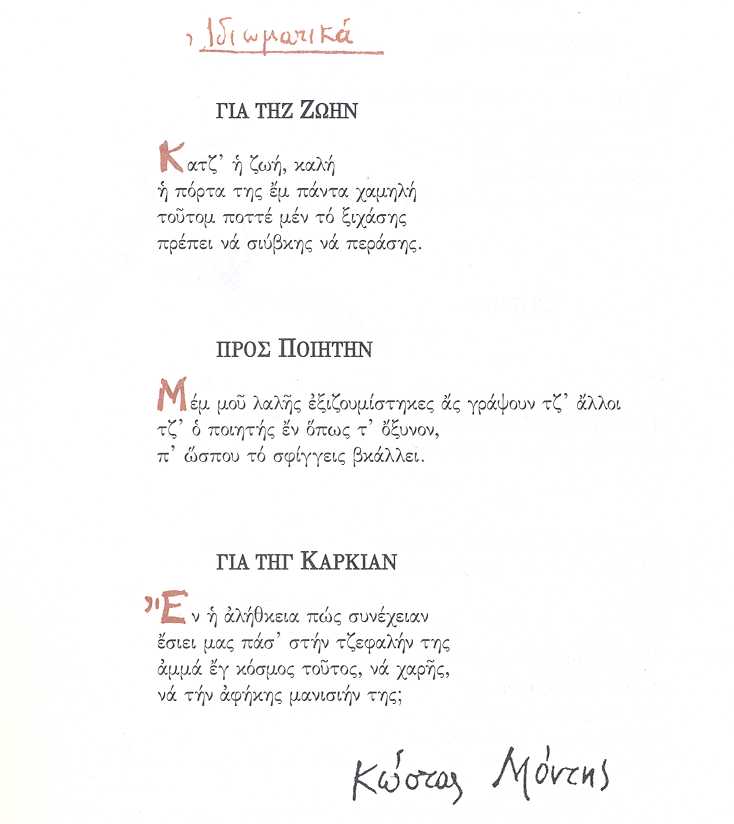 Ἰδιωματικά
ΓΙΑ ΤΗΖ ΖΩΗΝ
Κατζ’ ἡ ζωή, καλή
ἡ πόρτα της ἔμ πάντα χαμηλή
τοῦτομ ποττέ μέν τό ξιχάσης
πρέπει νά σιύβκης νά περάσης.
ΠΡΟΣ ΠΟΙΗΤΗΝ
Μέμ μοῦ λαλῆς ἐξιζουμίστηκες ἄς γράψουν τζ’ ἄλλοι
τζ’ ὁ ποιητής ἔν ὅπως τ’ ὄξυνον,
π’ ὥσπου τό σφίγγεις βκάλλει.
ΓΙΑ ΤΗΓ ΚΑΡΚΙΑΝ
Ἔν ἡ ἀλήθκεια πώς συνέχειαν
ἔσιει μας πάσ’ στήν τζεφαλήν της
ἀμμά ἔγ κόσμος τοῦτος, νά χαρῆς,
νά τήν ἀφήκης μανισιήν της;
Κώστας Μόντης